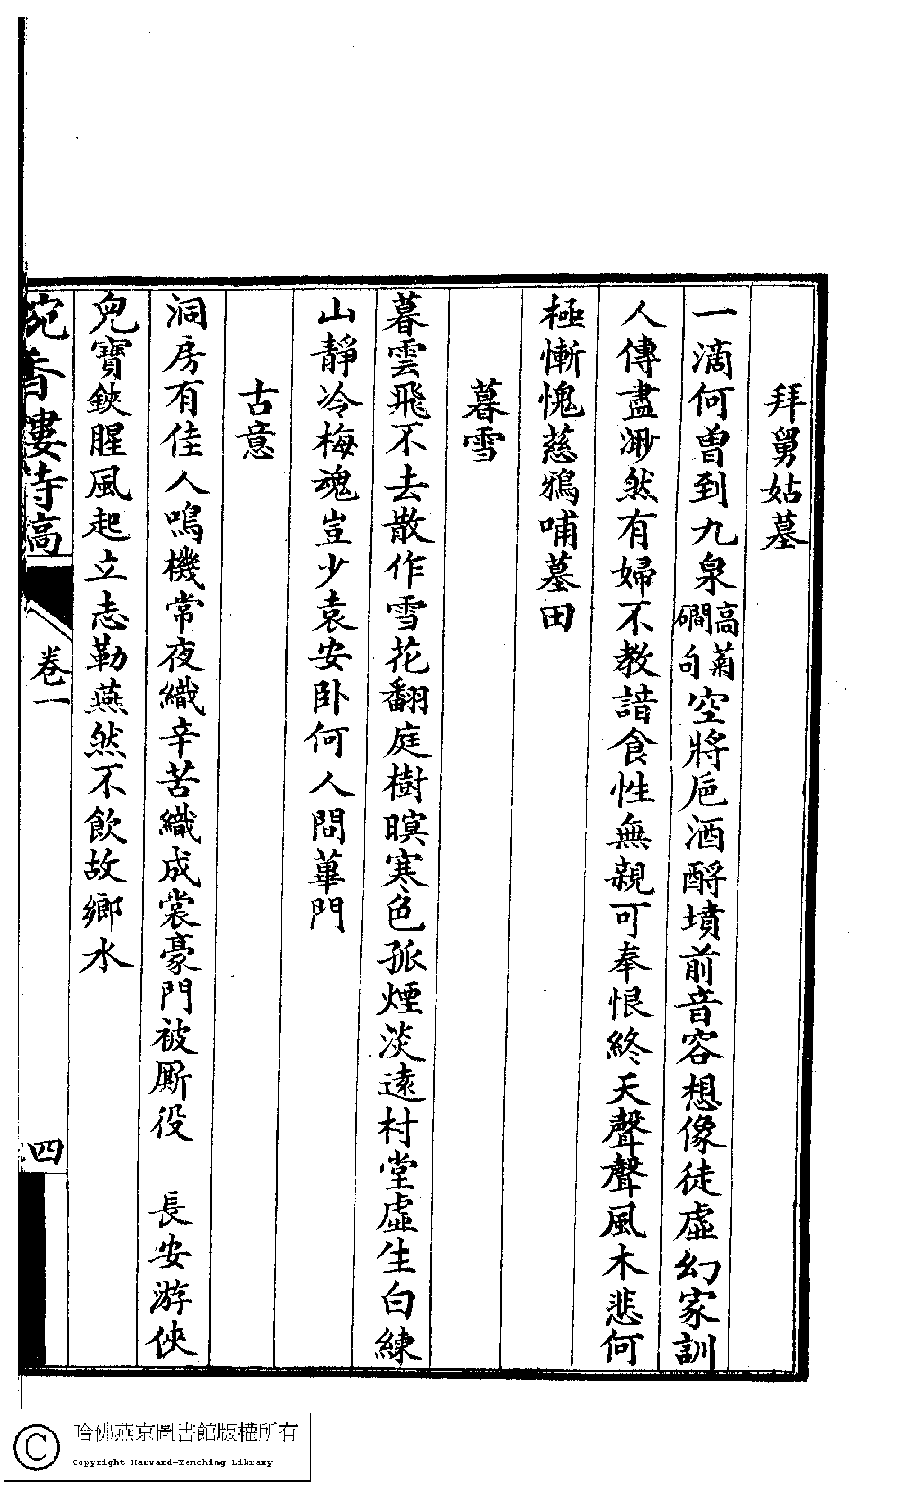 拜舅姑墓
一滴何曾到九泉高菊磵句空將巵酒酹墳前音容想像徒虛幻家訓
人傳盡渺然有婦不教諳食性無親可奉恨終天聲聲風木悲何
極慚愧慈鴉哺墓田
暮雪
暮雲飛不去散作雪花翻庭樹暝寒色孤煙淡遠村堂虛生白練
山靜冷梅魂豈少袁安卧何人問蓽門
古意
洞房有佳人鳴機常夜織辛苦織成裳豪門被厮役 長安游俠
兒寶鋏腥風起立志勒燕然不飲故鄉水
香樓詩稿
卷一
四
哈佛燕京圖書館版權所有
Copyright Harvard-Yenching Library